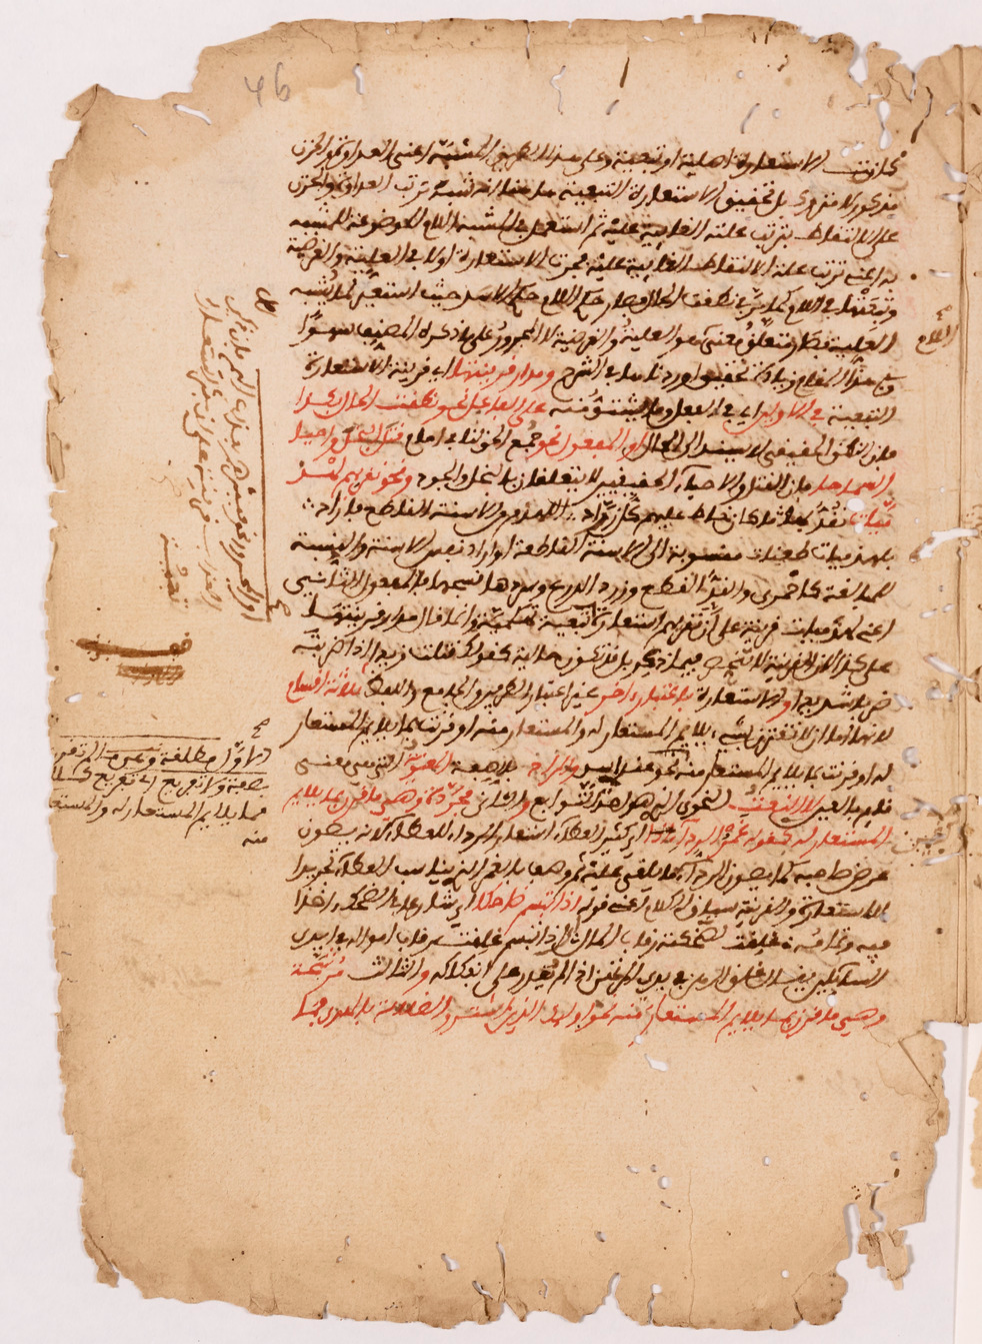 46
فكانت الاستعارة اصلية او تبعية وعلى هذا الطريق المشبه اعنى العداوة والحزن
مذكور لا متروك بل تحقيق الاستعارة التبعية هاهنا انه شبه ترتب العداوة والحزن
على الالتقاط بترتب علته الغايية عليه ثم استعمل فى المشبه اللام الموضوعة للمشبه
به اعنى ترتب علة الالتقاط الغايية عليه فجرت الاستعارة اولا فى العلية والغرضية
وتبعيتها فى اللام كما مر فى نطقت الحال فصار حكم اللام حكم الاسد حيث استعير لما يشبه
العلية فصار متعلق معنى هو العلية والغرضية لا المجرور على ما ذكره المصنف سهوا
وفى هذا المقام زيادة تحقيق اوردناها فى الشرح ومدار قرينتها اى قرينة الاستعارة
التبعية فى الاولين اى فى الفعل وما يشتق منه على الفاعل نحو نطقت الحال بكذا
فان النطق الحقيقى لا يسند الى الحال او المفعول نحو جمع الحق لنا فى امام قتل البخل واحيا
السماحا فان القتل والاحياء الحقيقيين لا يتعلقان بالبخل والجود ونحو نقريهم لهذ
ميات نقد بها ما كان خاط عليهم كل زراد اللهذم من الاسنة القاطع فاراد
بلهذميات طعنات منسوبة الى الاسنة القاطعة او اراد نفس الاسنة والنسبة
للمبالغة كاحمرى والقد القطع وزرد الدرع وسردها نسجها فالمفعول الثانى
اعنى لهذميات قرينة على ان نقريهم استعارة تبعية تهكمية وانما قال مدار قرينتها
على كذا لان القرينة لا تنحصر فيما ذكر بل قد تكون حالية كقولك قتلت زيدا اذا ضربته
ضربا شديدا والاستعارة باعتبار اخر غير اعتبار الطرفين والجامع واللفظ ثلاثة اقسام
لانها اما ان لا تقترن بشىء يلايم المستعار له والمستعار منه او قرنت بما يلايم المستعار
له او قرنت بما يلايم المستعار منه نحو عندى اسد والمراد بالصفة المعنوية التى هى معنى
قايم بالغير لا النعت النحوى الذى هو احد التوابع والثانى مجردة وهى ما قرن بما يلايم
المستعار له كقوله غمر الرداء اى كثير العطاء استعار الرداء للعطاء لانه يصون
عرض صاحبه كما يصون الرداء ما يلقى عليه ثم وصفه بالغمر الذى يناسب العطاء تجريدا
للاستعارة والقرينة سياق الكلام اعنى قوله اذا تبسم ضاحكا اى شارعا فى الضحك اخذا
فيه وتمامه غلقت لضحكته رقاب المال اى اذا تبسم غلقت رقاب امواله فى ايدى
السايلين يقال غلق الرهن فى يد المرتهن اذا لم يقدر على انفكاكه والثالث مرشحة
وهى ما قرن بما يلايم المستعار منه نحو اولايك الذين اشتروا الضلالة بالهدى فما
اللام
الاول مطلقة وهى ما لم تقترن
بصفة ولا تفريع
مما يلايم المستعار له والمستعار
منه